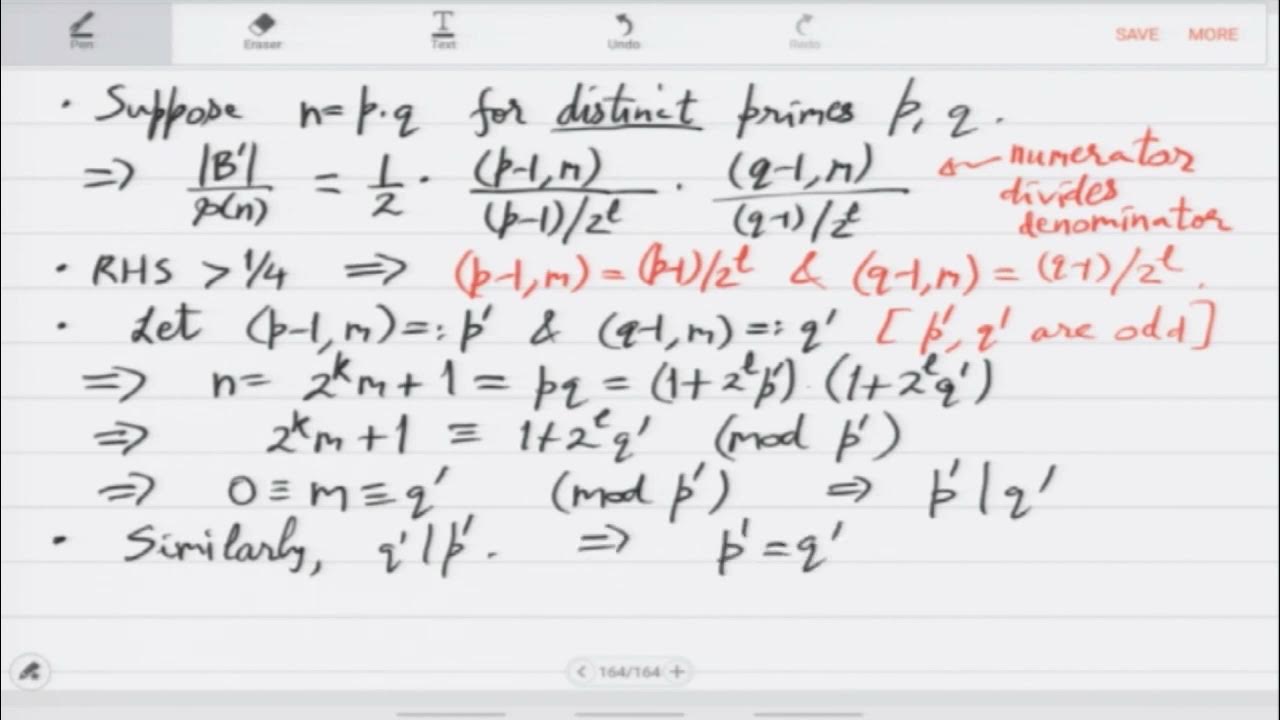 Pen Eraser Text Undo Redo SAVE MORE
· Suppose n = p·q for distinct primes p, q.
=> |B'|/φ(n) = 1/2 · (p-1, m)/((p-1)/2^l) · (q-1, m)/((q-1)/2^l) ← numerator
divides
denominator
· RHS > 1/4 => (p-1, m) = (p-1)/2^l & (q-1, m) = (q-1)/2^l.
· Let (p-1, m) =: p' & (q-1, m) =: q' [p', q' are odd]
=> n = 2^k m + 1 = pq = (1+2^l p')·(1+2^l q')
=> 2^k m + 1 ≡ 1+2^l q' (mod p')
=> 0 ≡ m ≡ q' (mod p') => p' | q'
· Similarly, q' | p'. => p' = q'
< 164/164 +